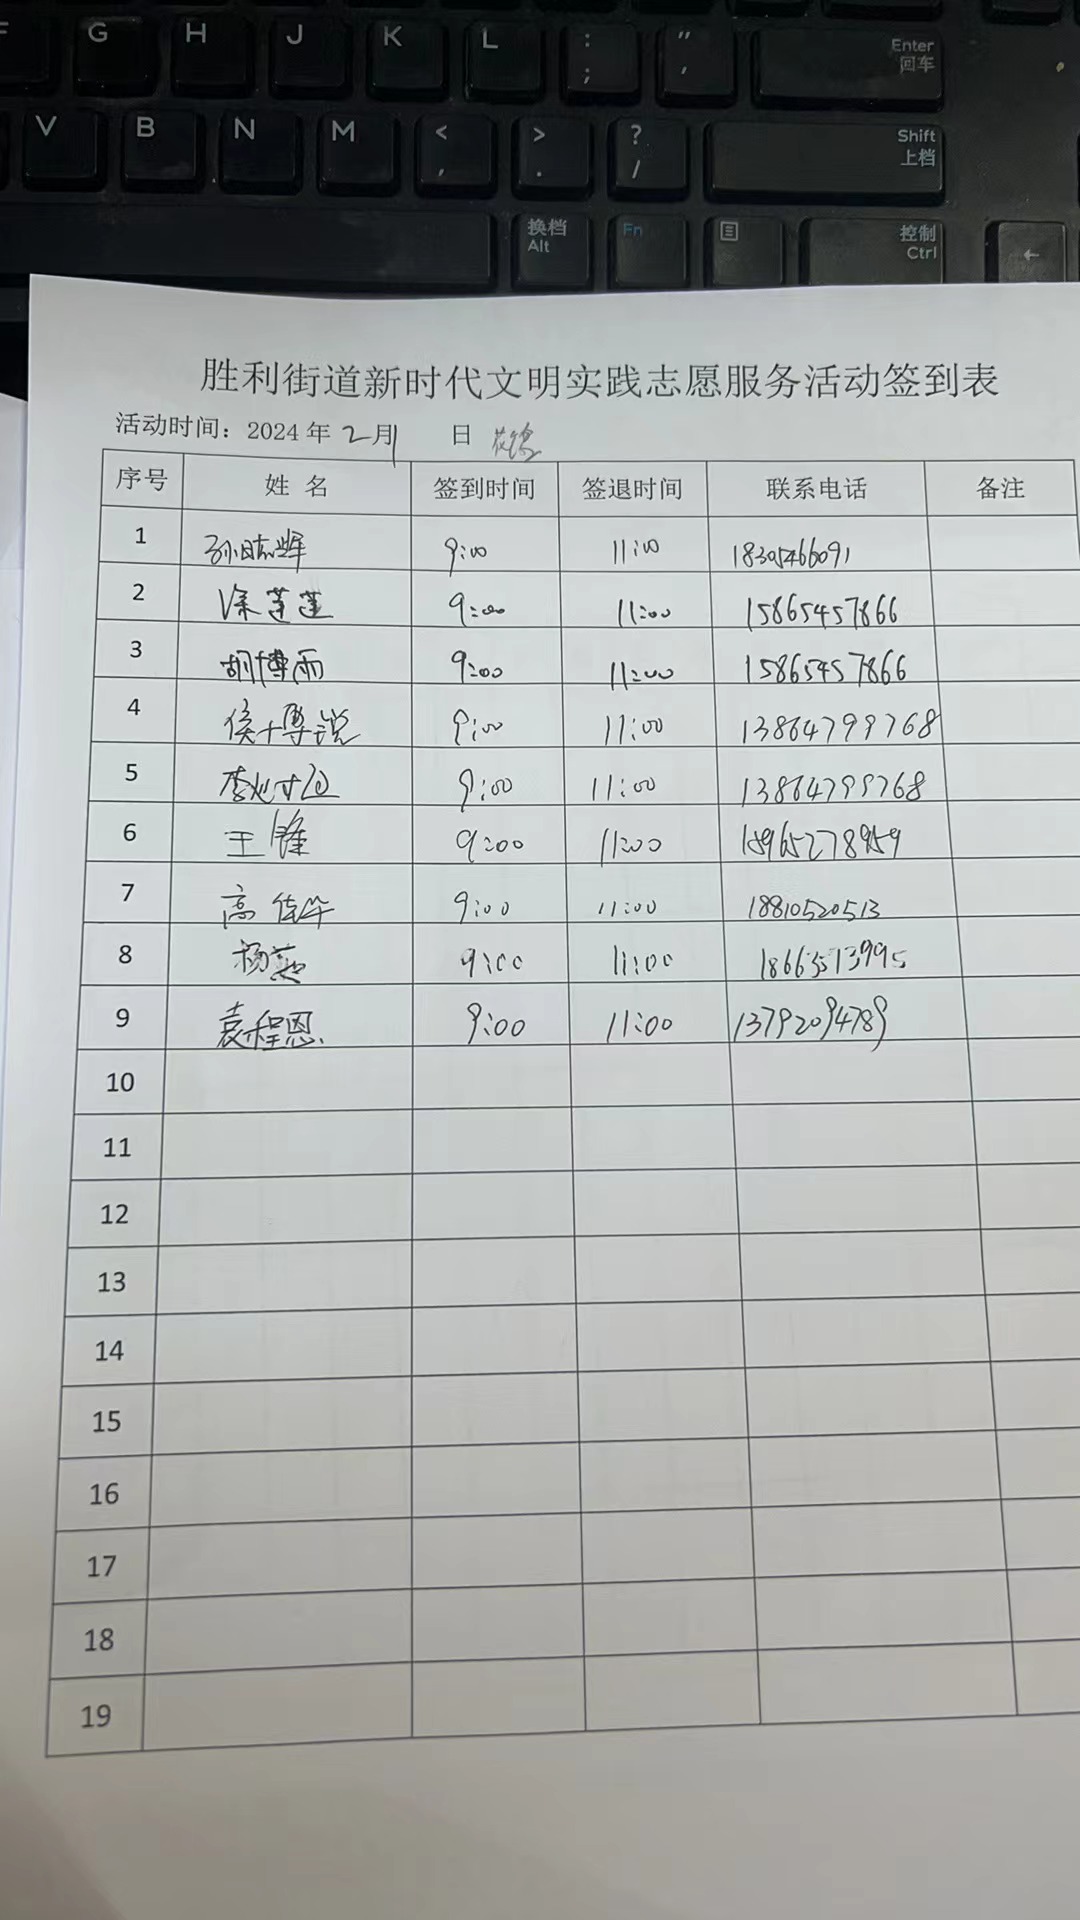 F G H J K L : ; " ' Enter 回车
V B N M < , > . ? / Shift 上档
换档 Alt Fn 控制 Ctrl ←
胜利街道新时代文明实践志愿服务活动签到表
活动时间：2024年2月1 日
序号 姓 名 签到时间 签退时间 联系电话 备注
1 孙志辉 9:00 11:00 18305466091
2 徐莲莲 9:00 11:00 15865457866
3 胡博雨 9:00 11:00 15865457866
4 侯博锐 9:00 11:00 13864799768
5 9:00 11:00 13864799768
6 王 9:00 11:00 15965278959
7 高佳华 9:00 11:00 18810520513
8 杨燕 9:00 11:00 18663513995
9 袁程恩 9:00 11:00 13792094789
10
11
12
13
14
15
16
17
18
19